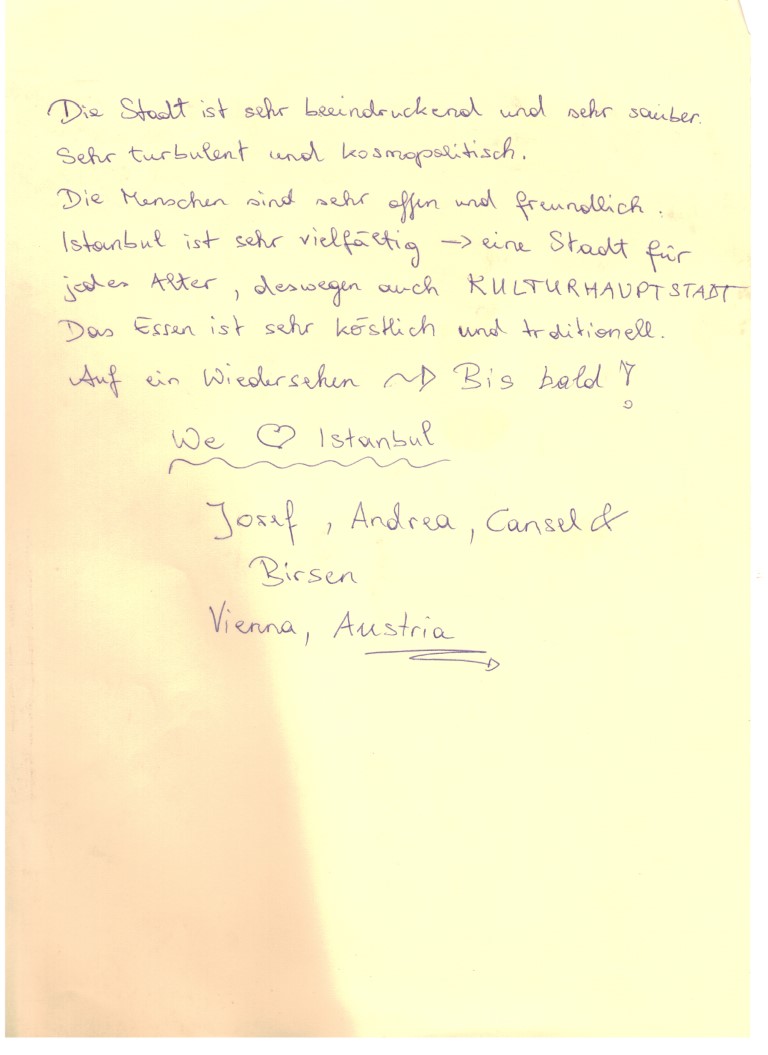 Die Stadt ist sehr beeindruckend und sehr sauber.
Sehr turbulent und kosmopolitisch.
Die Menschen sind sehr offen und freundlich.
Istanbul ist sehr vielfältig → eine Stadt für
jedes Alter, deswegen auch KULTURHAUPTSTADT
Das Essen ist sehr köstlich und traditionell.
Auf ein Wiedersehen → Bis bald!
We ♡ Istanbul
Josef, Andrea, Cansel &
Birsen
Vienna, Austria